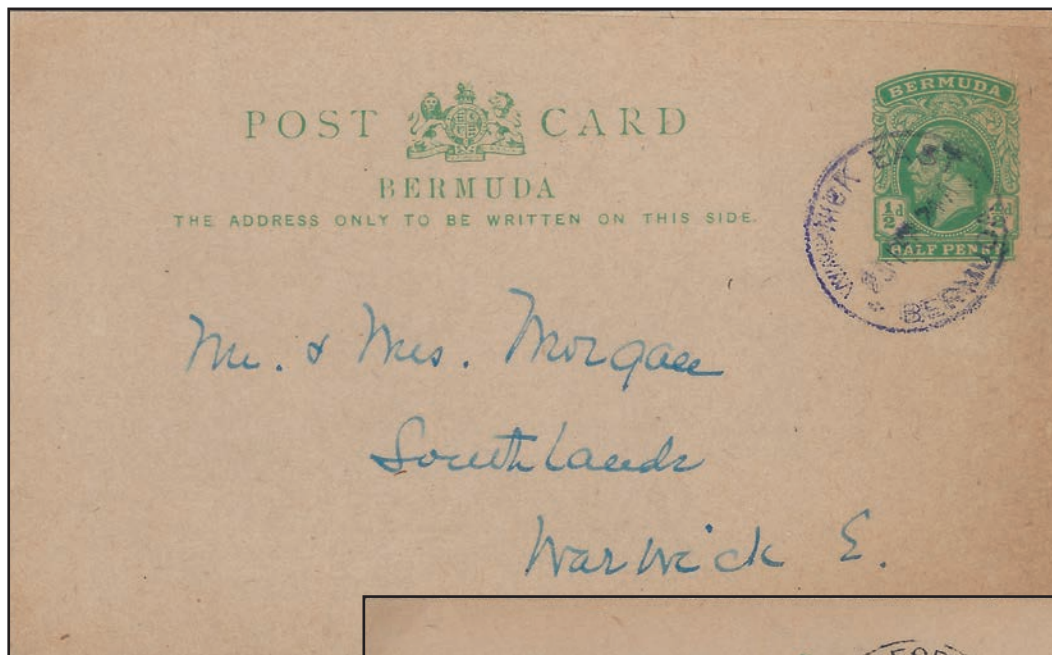 POST CARD
BERMUDA
THE ADDRESS ONLY TO BE WRITTEN ON THIS SIDE.
BERMUDA
½d ½d
HALF PENNY
WARWICK EAST
BERMUDA
Mr. & Mrs. Morgan
Southlands
Warwick E.